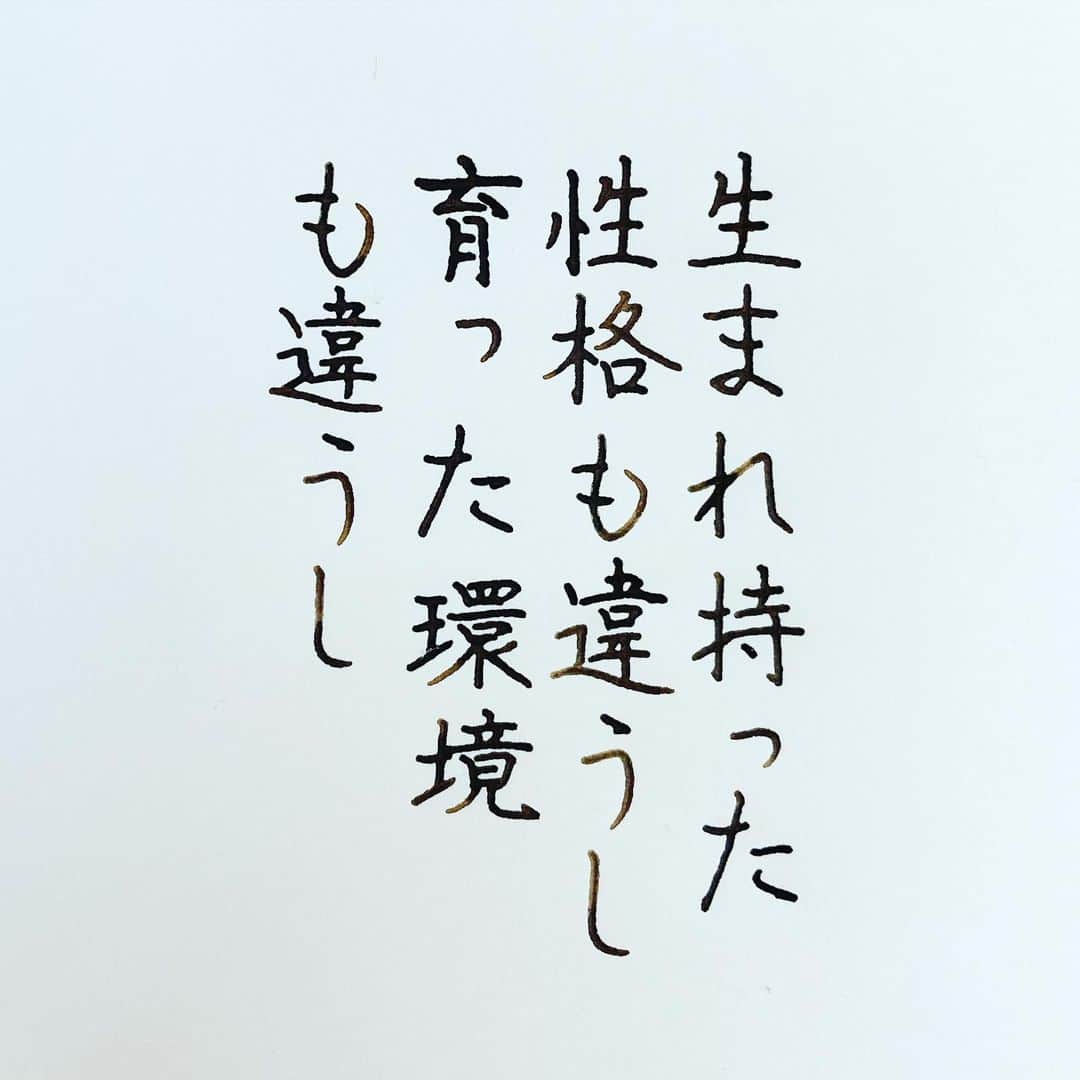 生まれ持った
性格も違うし
育った環境
も違うし